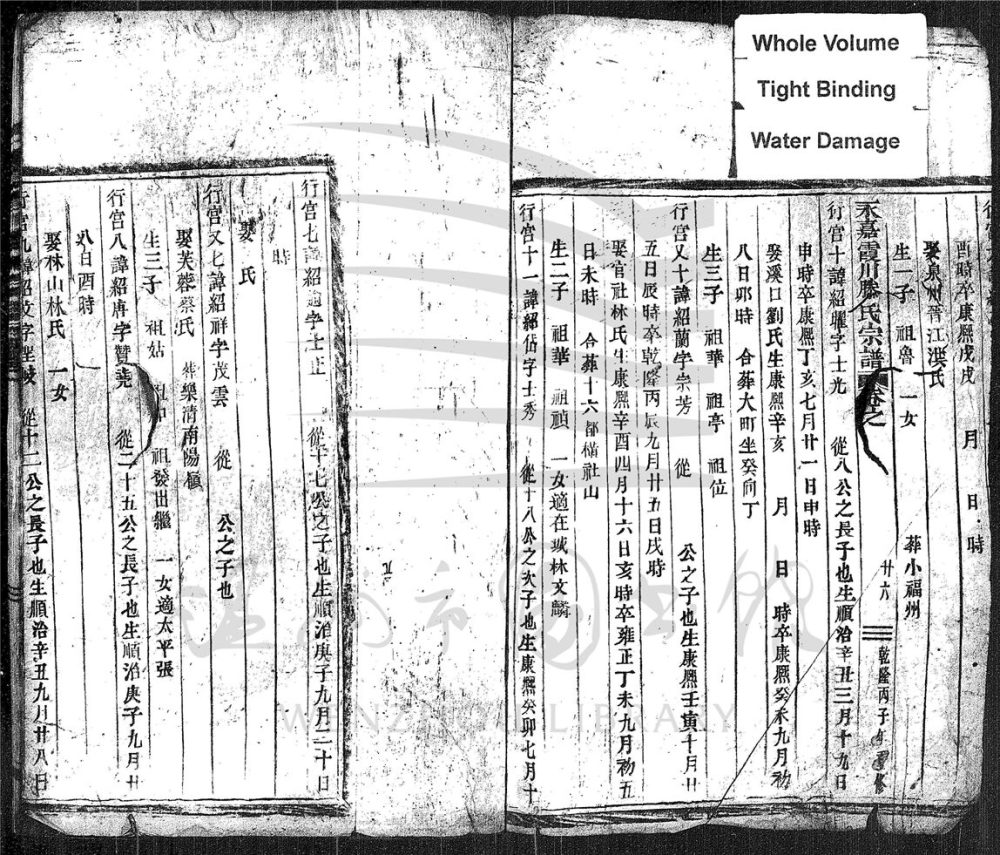 Whole Volume
Tight Binding
Water Damage
酉時卒康熙戊戌 月 日 時
娶泉州晉江洪氏 葬小福州
生一子 祖魯 一女
永嘉霞川滕氏宗譜 卷之 廿六 乾隆丙子年重修
行宫十諱紹 字士光 從八公之長子也生順治辛丑三月十九日
申時卒康熙丁亥七月廿一日申時
娶溪口劉氏生康熙辛亥 月 日 時卒康熙癸未九月初
八日卯時 合葬大町坐癸向丁
生三子 祖華 祖亭 祖位
行宫又十諱紹蘭字崇芳 從 公之子也生康熙壬寅十月廿
五日辰時卒乾隆丙辰九月廿五日戌時
娶官社林氏生康熙辛酉四月十六日亥時卒雍正丁未九月初五
日未時 合葬十六都橫社山
生二子 祖華 祖禎 一女適在城林文麟
行宫十一諱紹 字士秀 從十八公之次子也生康熙癸卯七月十
行宫七諱紹 字士正 從十七公之子也生順治庚子九月二十日
時
娶 氏
行宫又七諱紹祥字茂雲 從 公之子也
娶芙蓉蔡氏 葬樂清南陽
生三子 祖姑 祖發出繼 一女適太平張
行宫八諱紹唐字贊堯 從二十五公之長子也生順治庚子九月廿
八日酉時
娶林山林氏 一女
行宫九諱紹 字 從十二公之長子也生順治辛丑九月廿八日
溫州市圖書館
WENZHOU LIBRARY